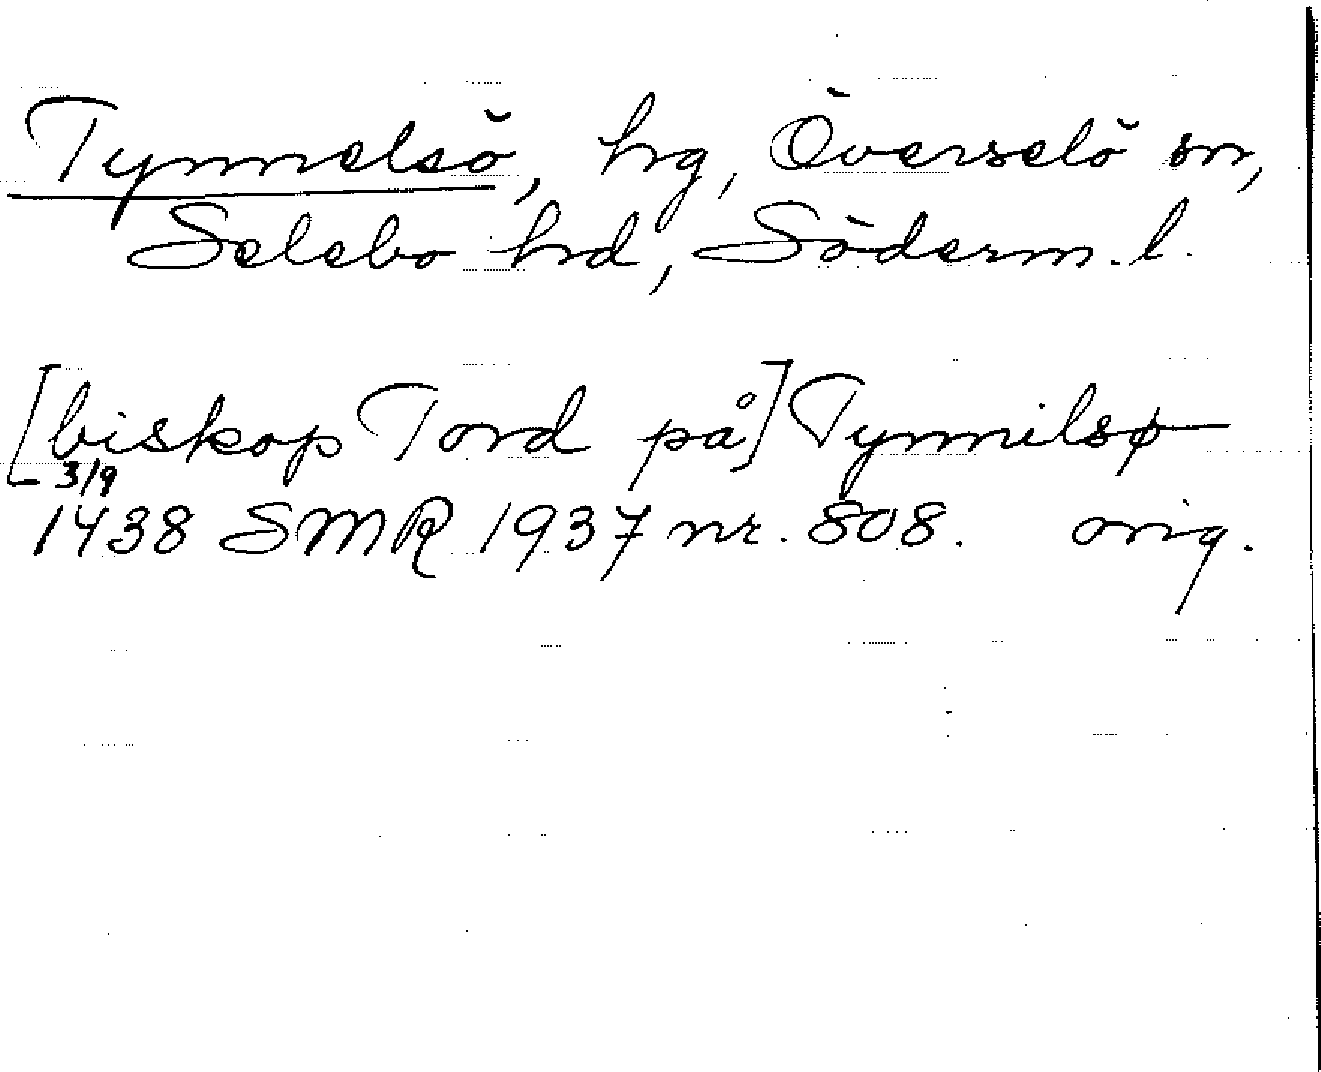 Tynnelsö, hrg, Överselö sn,
Selebo hrd, Söderm. l.
[biskop Tord på] Tynnilsø
3/9
1438 SMR 1937 nr. 808. orig.